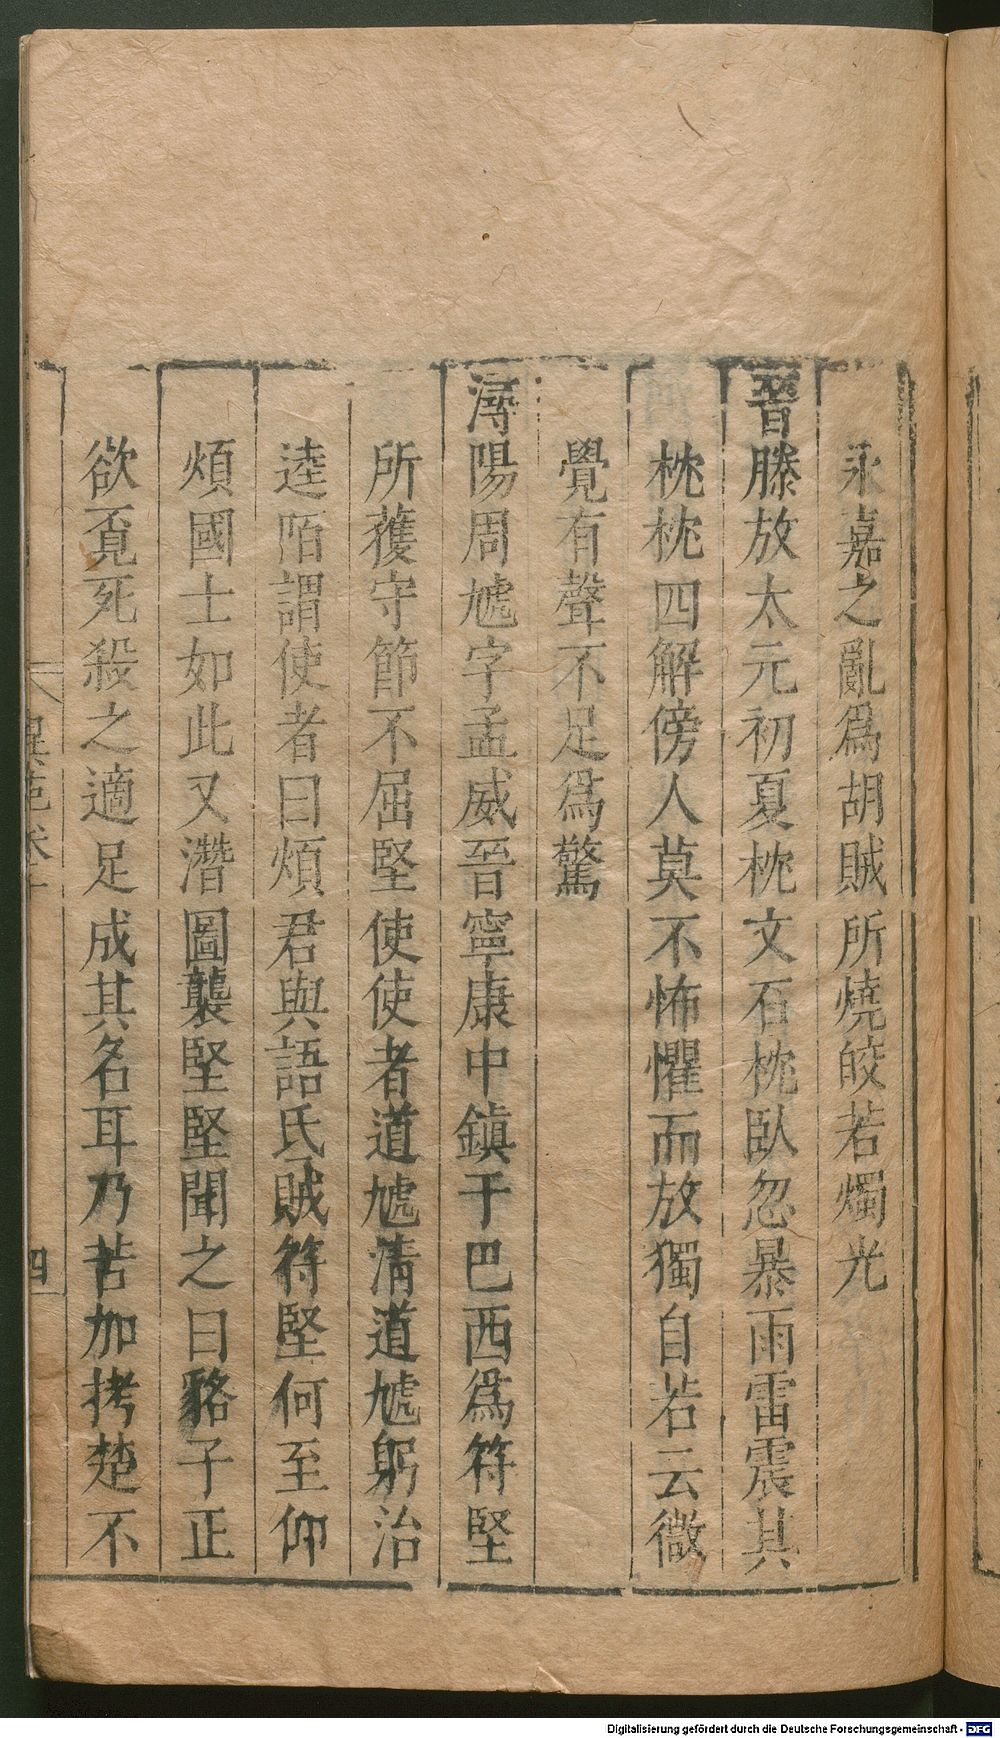 永嘉之亂爲胡賊所燒皎若燭光
晉滕放太元初夏枕文石枕臥忽暴雨雷震其
枕枕四解傍人莫不怖懼而放獨自若云微
覺有聲不足爲驚
潯陽周虓字孟威晉寧康中鎮于巴西爲符堅
所獲守節不屈堅使使者道虓清道虓躬治
逵陌謂使者曰煩君與語氏賊符堅何至仰
煩國士如此又潛圖襲堅堅聞之曰貉子正
欲覔死殺之適足成其名耳乃苦加拷楚不
異苑卷十
四
Digitalisierung gefördert durch die Deutsche Forschungsgemeinschaft - DFG